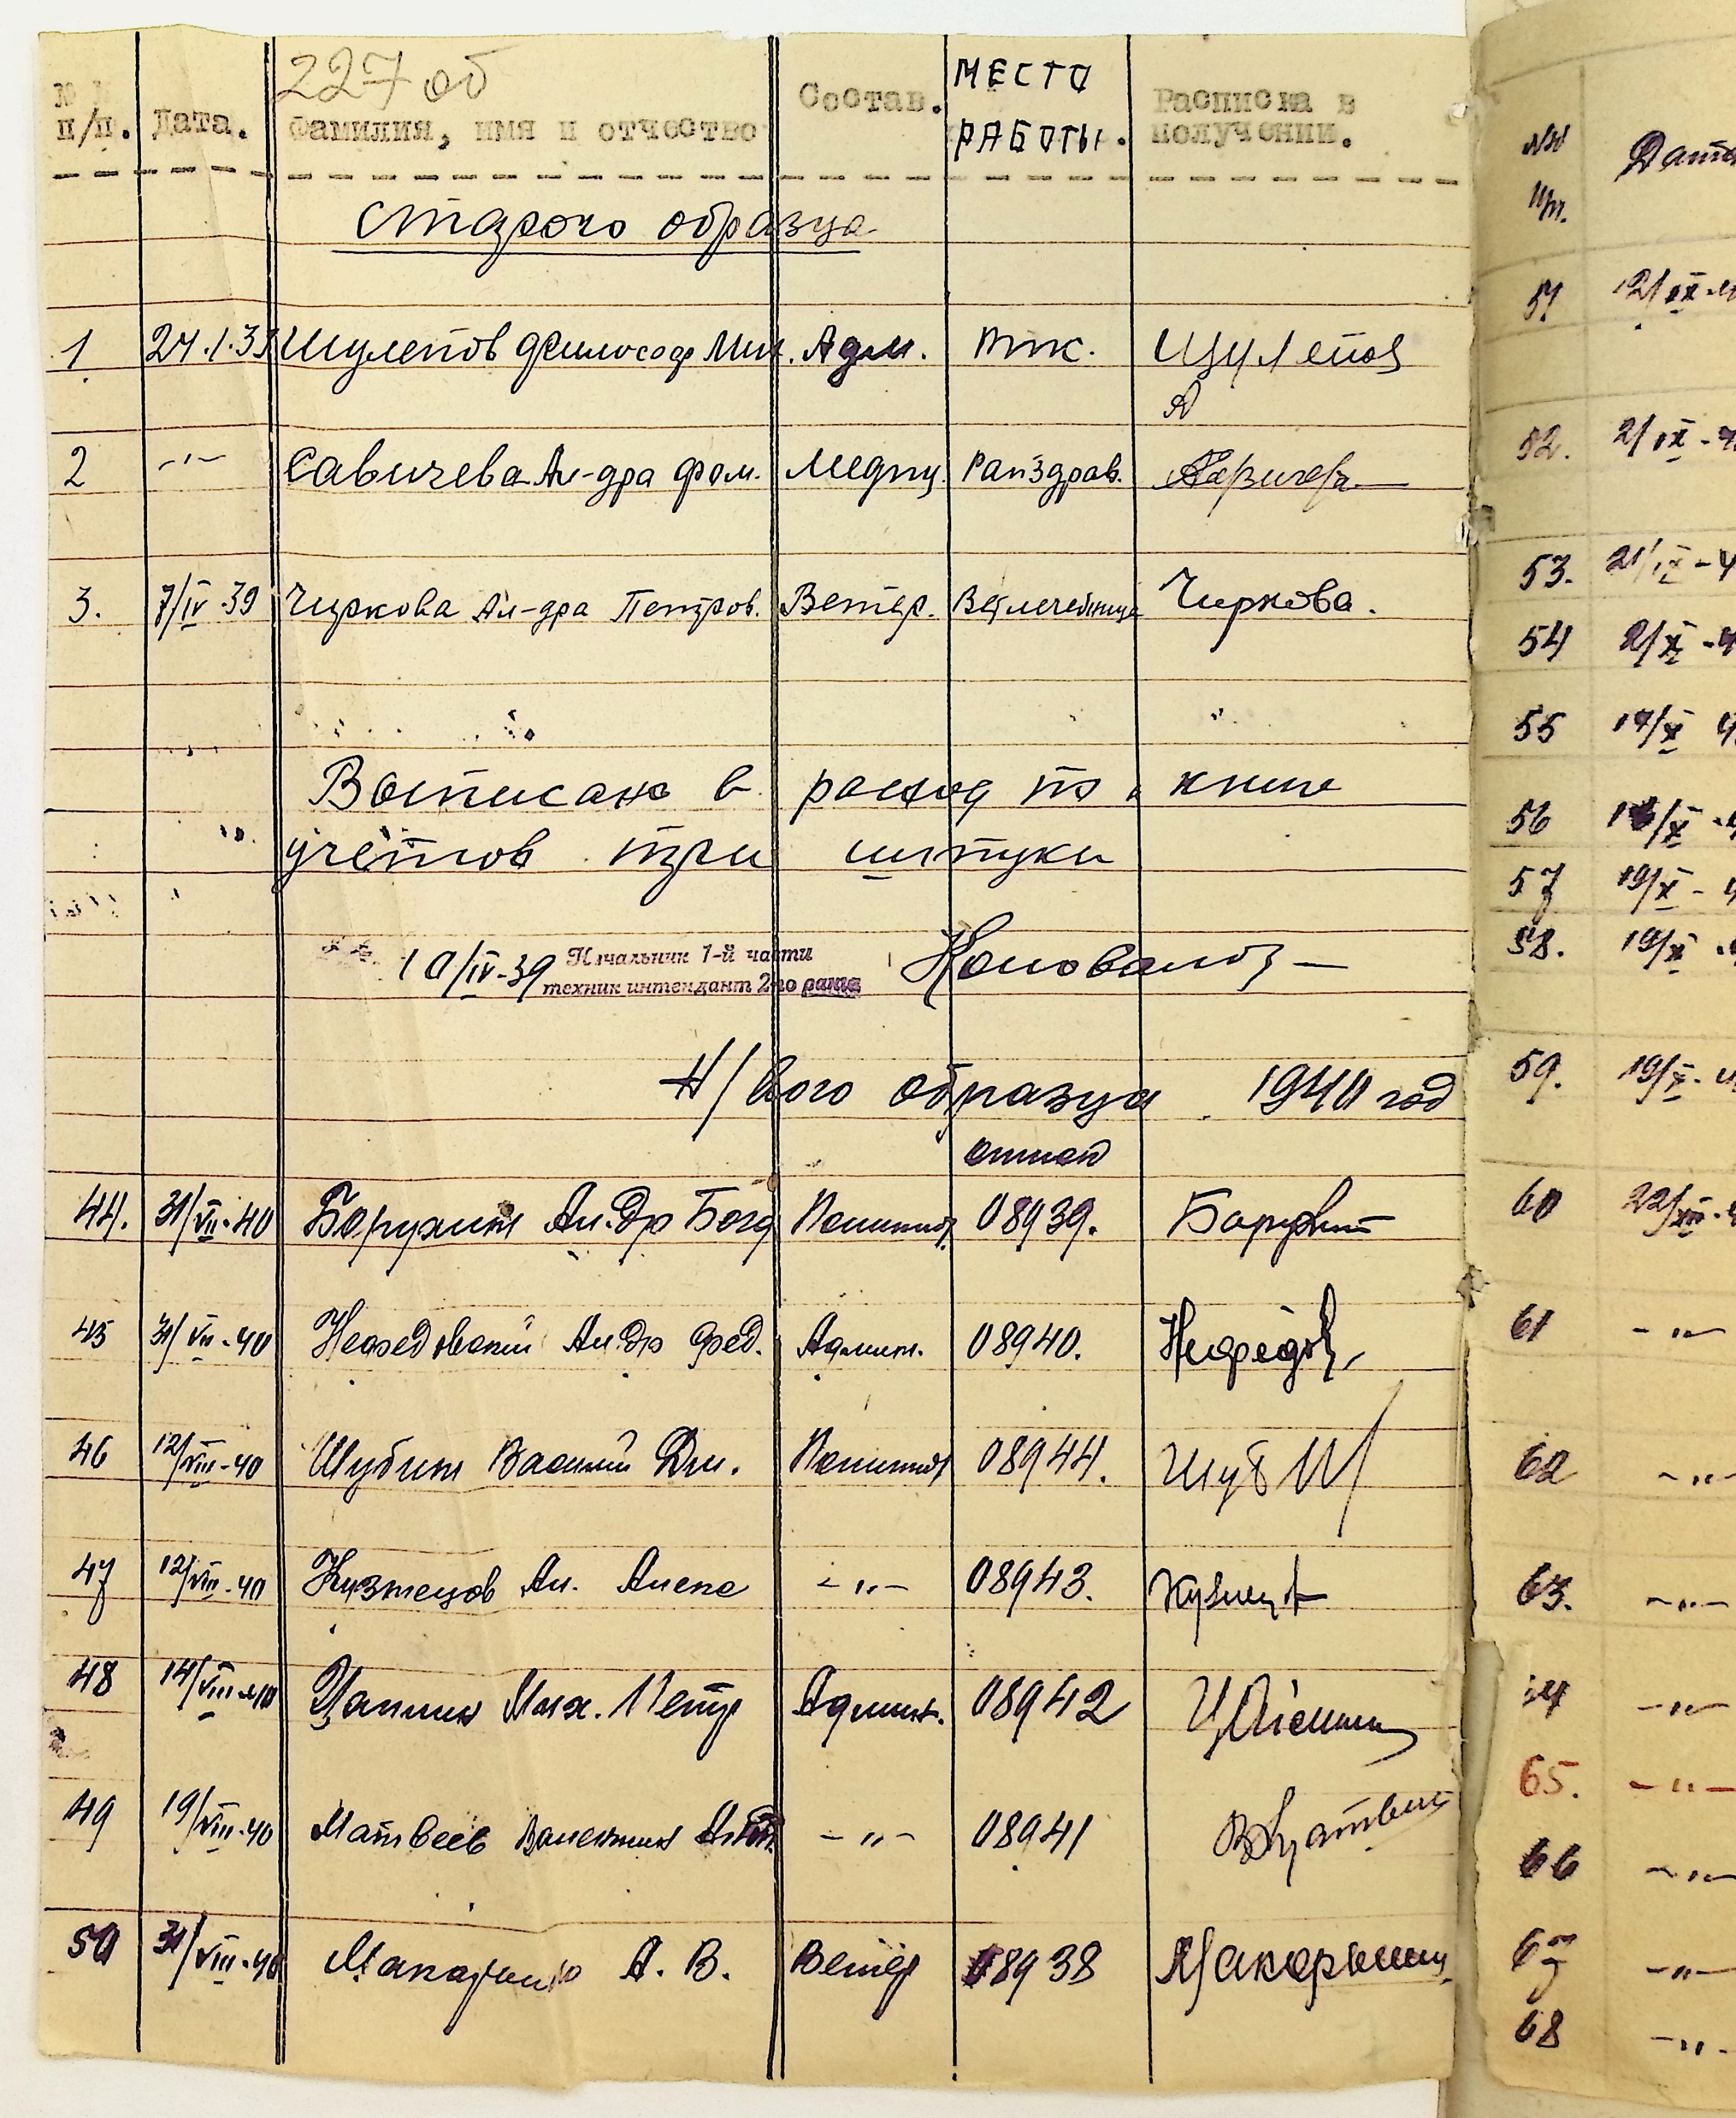 227 об
№ п/п. Дата. Фамилия, имя и отчество Состав. МЕСТО РАБОТЫ. Расписка в получении.
старого образца
1 27.1.39 Шулепов Философ Мих. Адм. Шулепов
2 -"- Савичева Ал-дра Фом. Медиц. Райздрав.
3. 7/IV-39 Чиркова Ал-дра Петров. Ветер. Ветлечебница Чиркова.
Выписано в расход по книге
учётов три штуки
10/IV-39 Начальник 1-й части
техник интендант 2-го ранга Коновалов
Н/вого образца 1940 год
44. 31/VII-40 Ал-др Богд Политич 08939.
45 31/VII-40 Ал-др Фед. Админ. 08940. Нефедов
46 12/VIII-40 Шубин Василий Дм. Политич 08944. Шуб
47 12/VIII-40 Кузнецов Ал. Алекс -"- 08943. Кузнец
48 14/VIII-40 Мих. Петр Админ. 08942
49 19/VIII-40 Матвеев Валентин -"- 08941
50 31/VIII-40 А. В. Ветер 08938
№№ п/п. Дата
51
52. 2/IX-4
53. 21/IX-4
54 2/X-4
55 17/X 4
56
57 19/X-4
58. 19/X-4
59. 19/X-4
60
61 -"-
62 -"-
63. -"-
64 -"-
65. -"-
66 -"-
67 -"-
68 -"-